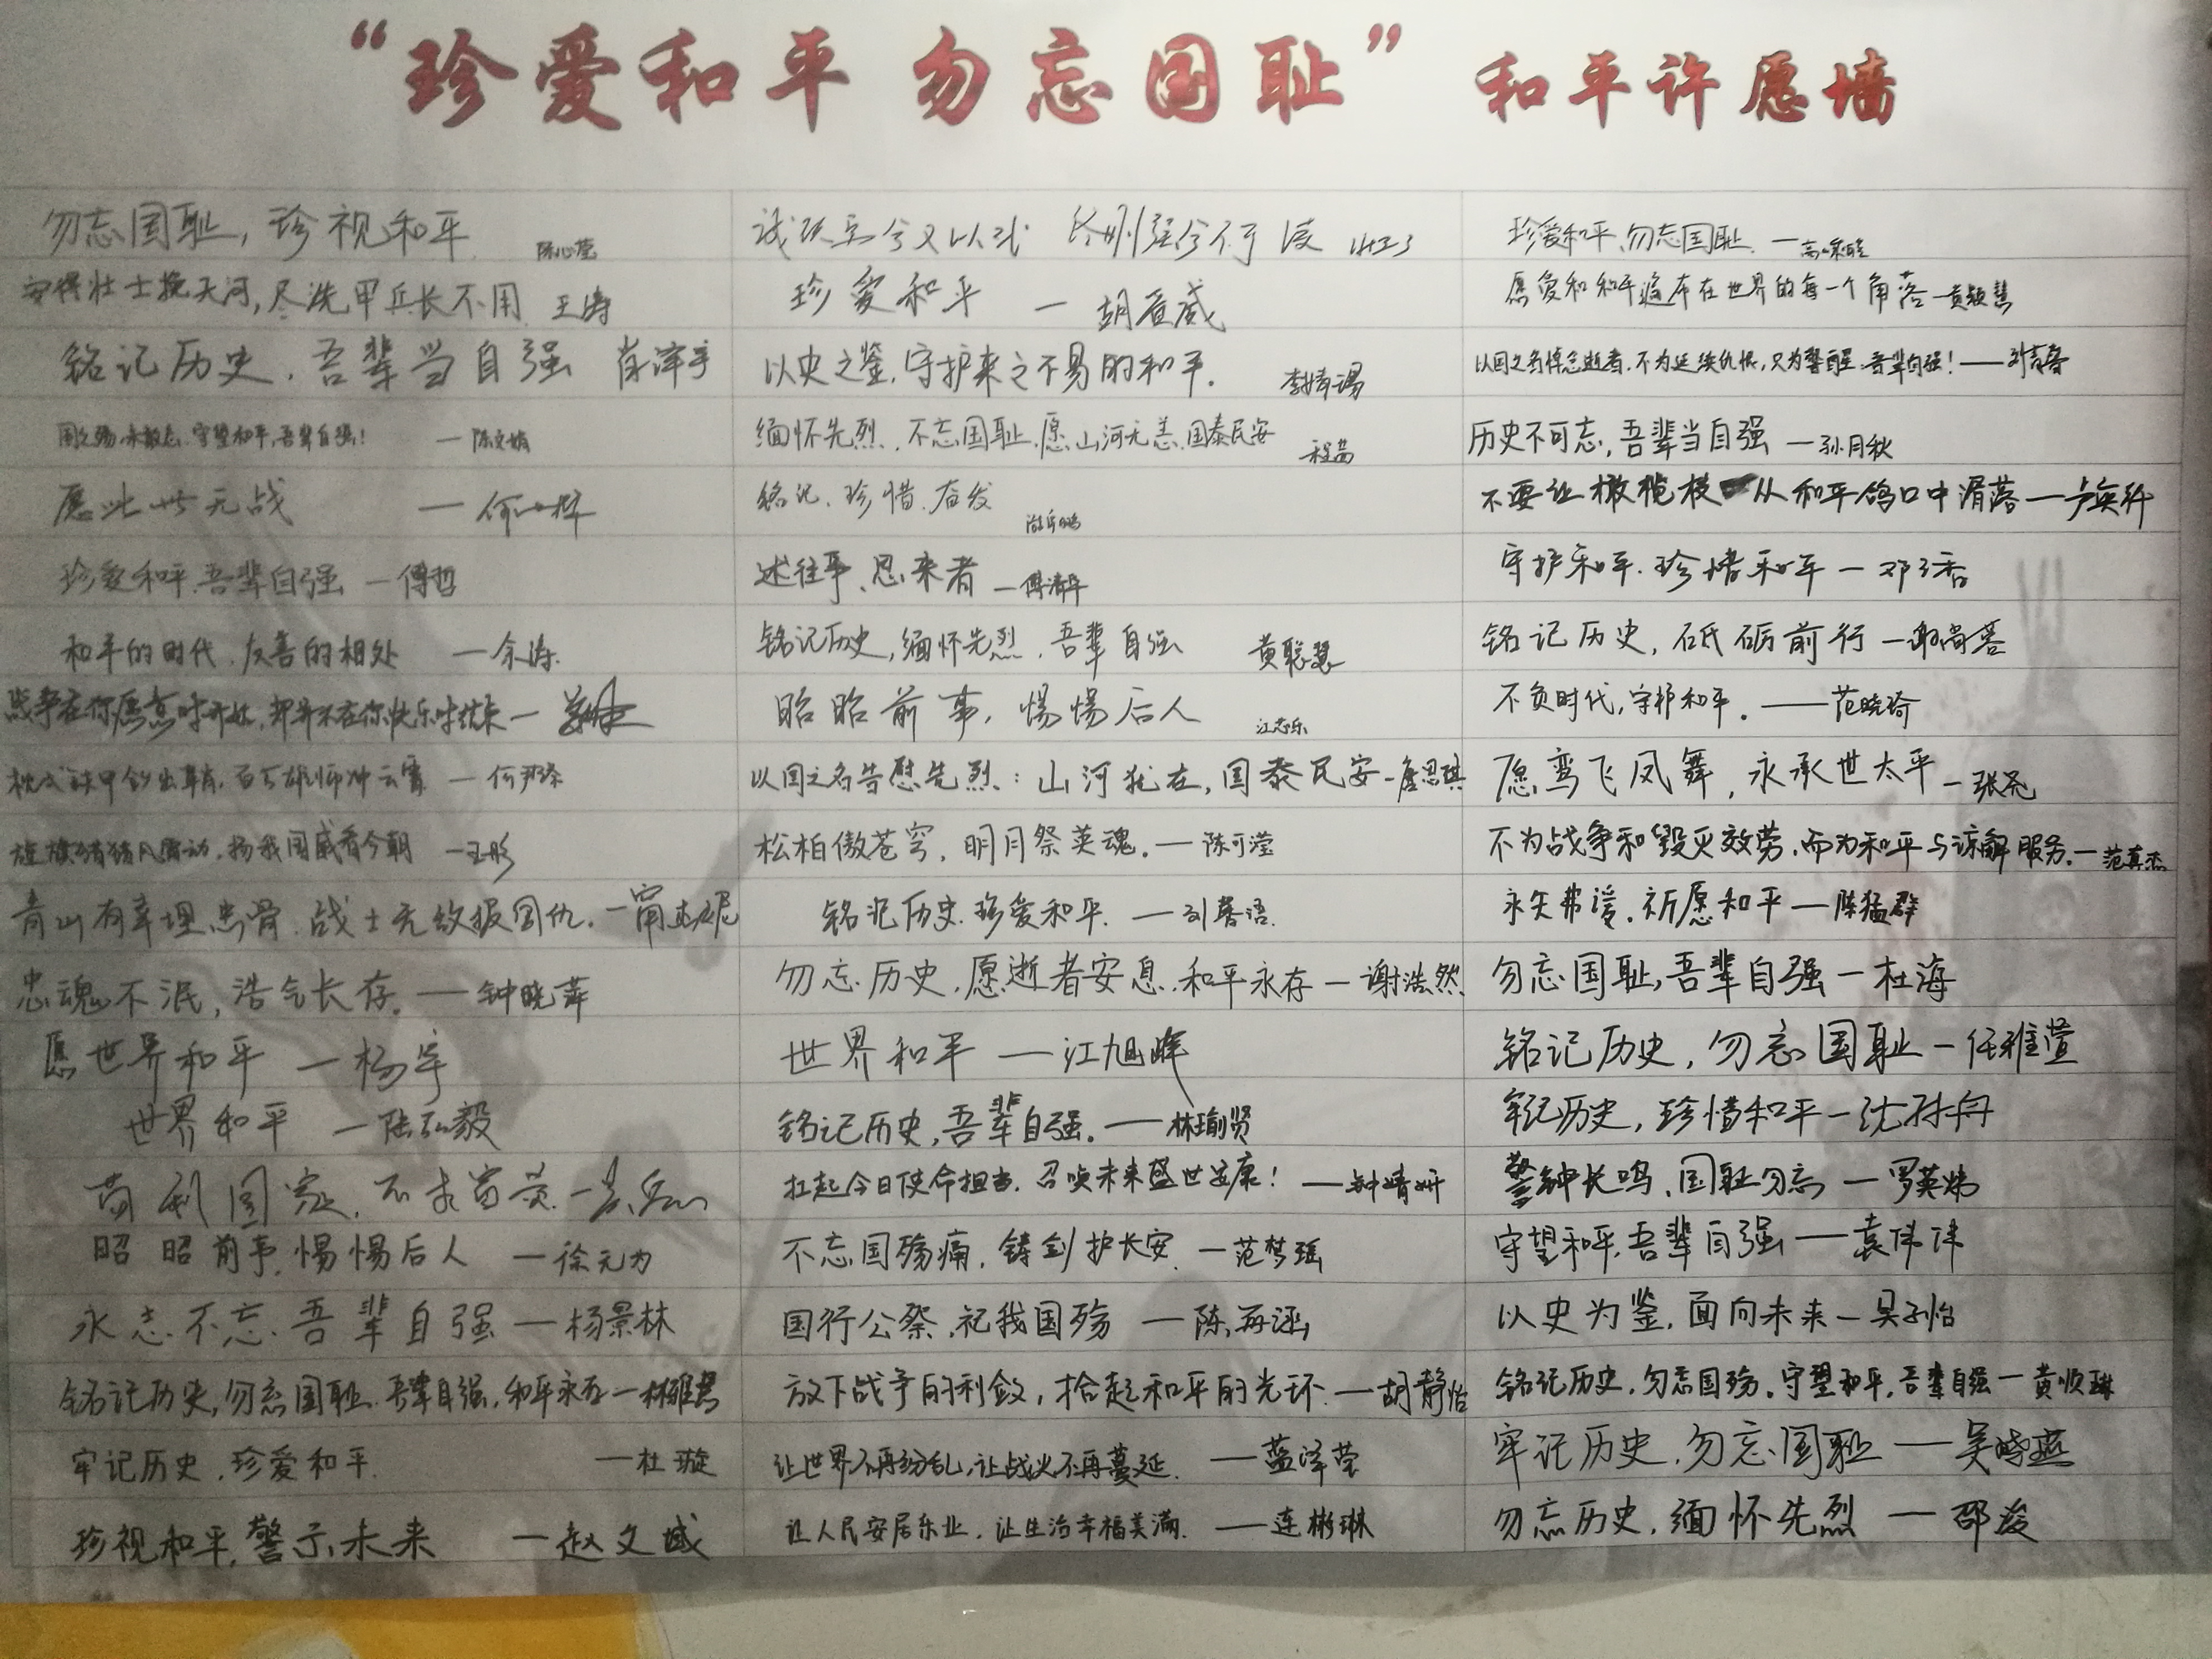 “珍爱和平 勿忘国耻” 和平许愿墙
勿忘国耻，珍视和平 陈心莹
安得壮士挽天河，尽洗甲兵长不用 王涛
铭记历史，吾辈当自强 肖泽宇
国之殇，未敢忘，守望和平，吾辈自强！ —陈文婧
愿此世无战 —何
珍爱和平，吾辈自强 —傅哲
和平的时代，友善的相处 —余涛
战争在你愿意时开始，却并不在你快乐时结束—
百万雄师冲云霄 —何
旌旗猎猎风雷动，扬我国威看今朝 —王彤
青山有幸埋忠骨，战士无敌报国仇。—甯
忠魂不泯，浩气长存。——钟晓萍
愿世界和平 —杨宇
世界和平 —陆弘毅
苟利国家，不求富贵—
昭昭前事，惕惕后人 —徐元为
永志不忘，吾辈自强—杨景林
铭记历史，勿忘国耻，吾辈自强，和平永存—林雅君
牢记历史，珍爱和平 —杜璇
珍视和平，警示未来 —赵文彧
诚既勇兮又以武 终刚强兮不可凌
珍爱和平 —胡百威
以史之鉴，守护来之不易的和平。 李婧旸
缅怀先烈，不忘国耻，愿山河无恙，国泰民安 程茜
铭记、珍惜、奋发
述往事、思来者 —傅清平
铭记历史，缅怀先烈，吾辈自强 黄聪慧
昭昭前事，惕惕后人 江志乐
以国之名告慰先烈：山河犹在，国泰民安—詹思琪
松柏傲苍穹，明月祭英魂。—陈可滢
铭记历史，珍爱和平。—刘馨语
勿忘历史，愿逝者安息，和平永存—谢浩然
世界和平 —江旭峰
铭记历史，吾辈自强。—林瑜贤
扛起今日使命担当，召唤未来盛世安康！ —钟婧妍
不忘国殇痛，铸剑护长安 —范梦瑶
国行公祭，祀我国殇 —陈苒涵
放下战争的利剑，拾起和平的光环 —胡静怡
让世界不再纷乱，让战火不再蔓延。 —蓝泽莹
让人民安居乐业，让生活幸福美满。 —连彬琳
珍爱和平，勿忘国耻 —高
愿爱和和平遍布在世界的每一个角落—黄颖慧
以国之名悼念逝者，不为延续仇恨，只为警醒，吾辈自强！——刘
历史不可忘，吾辈当自强 —孙月秋
不要让橄榄枝从和平鸽口中滑落—卢奕舒
守护和平，珍惜和平—邓子香
铭记历史，砥砺前行—谢尚蓉
不负时代，守护和平。——范晓琦
愿鸾飞凤舞，永承世太平—张尧
不为战争和毁灭效劳，而为和平与谅解服务。—范真杰
永矢弗谖，祈愿和平—陈猛群
勿忘国耻，吾辈自强—杜海
铭记历史，勿忘国耻—任雅萱
牢记历史，珍惜和平—沈孙舟
警钟长鸣，国耻勿忘 —罗英炜
守望和平，吾辈自强——袁伟沣
以史为鉴，面向未来—吴子怡
铭记历史，勿忘国殇。守望和平，吾辈自强—黄顺琳
牢记历史，勿忘国耻——吴晓燕
勿忘历史，缅怀先烈 —邵凌